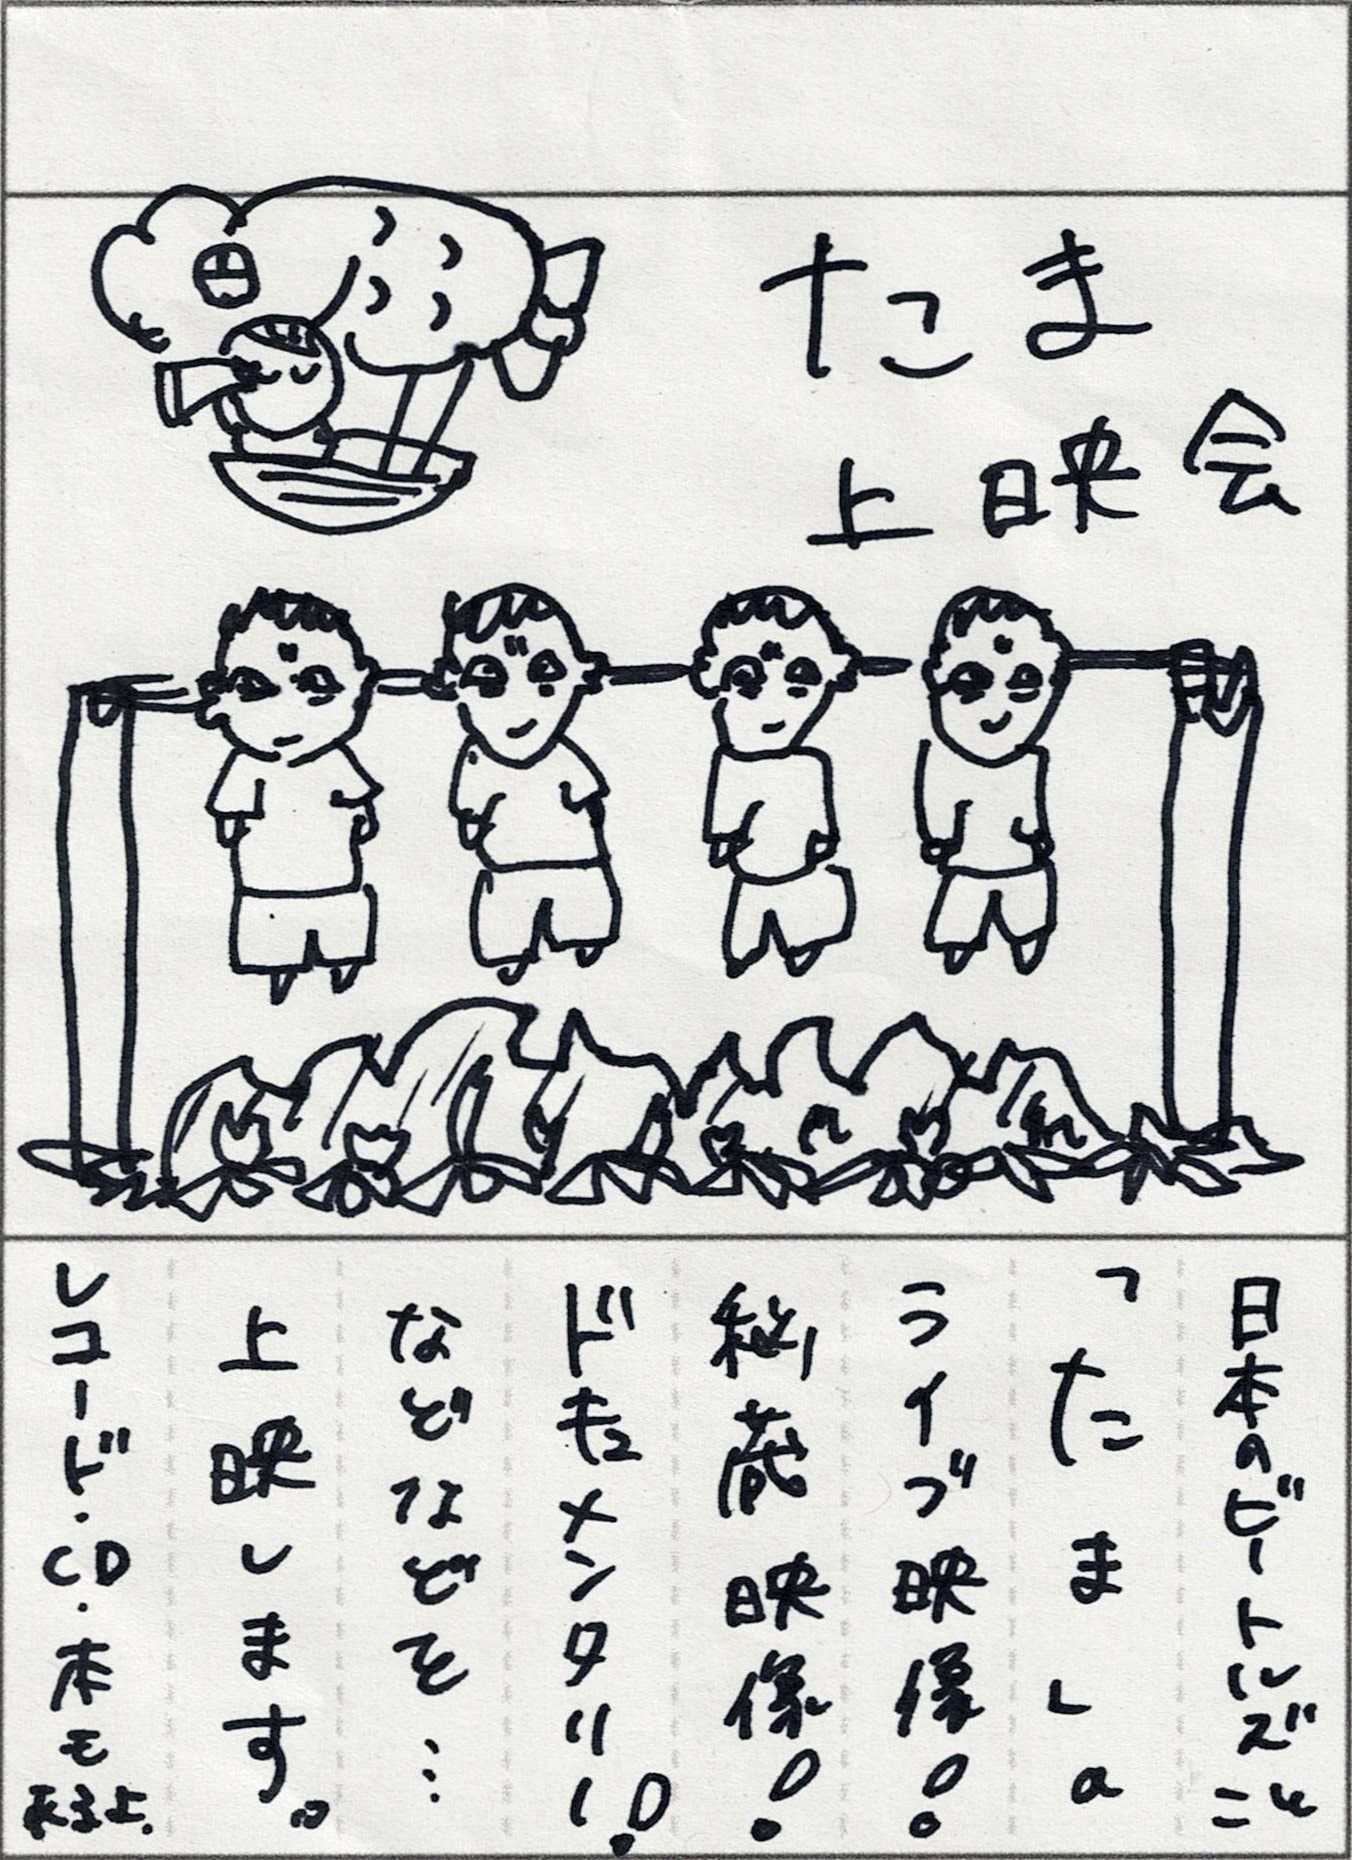 たま
上映会
日本のビートルズこと
「たま」の
ライブ映像!
秘蔵映像!
ドキュメンタリー!
などなどを…
上映します。
レコード・CD・本も
来るよ.